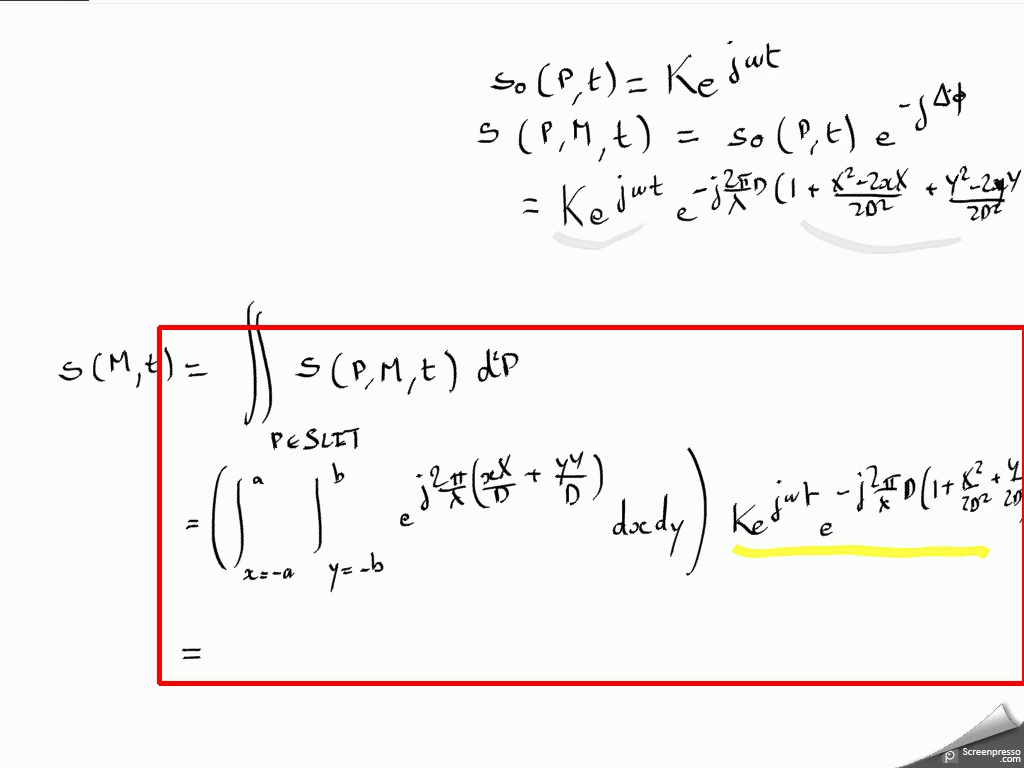 s₀(P,t) = K e^{jωt}
s(P,M,t) = s₀(P,t) e^{-jΔφ}
= K e^{jωt} e^{-j\frac{2π}{λ}D(1 + \frac{X²-2xX}{2D²} + \frac{Y²-2yY}{2D²}}
s(M,t) = ∬_{P∈SLIT} s(P,M,t) d²P
= (∫_{x=-a}^{a} ∫_{y=-b}^{b} e^{j\frac{2π}{λ}(\frac{xX}{D} + \frac{yY}{D})} dx dy) K e^{jωt} e^{-j\frac{2π}{λ}D(1+\frac{X²}{2D²}+\frac{Y}{2D}}
=
Screenpresso
.com